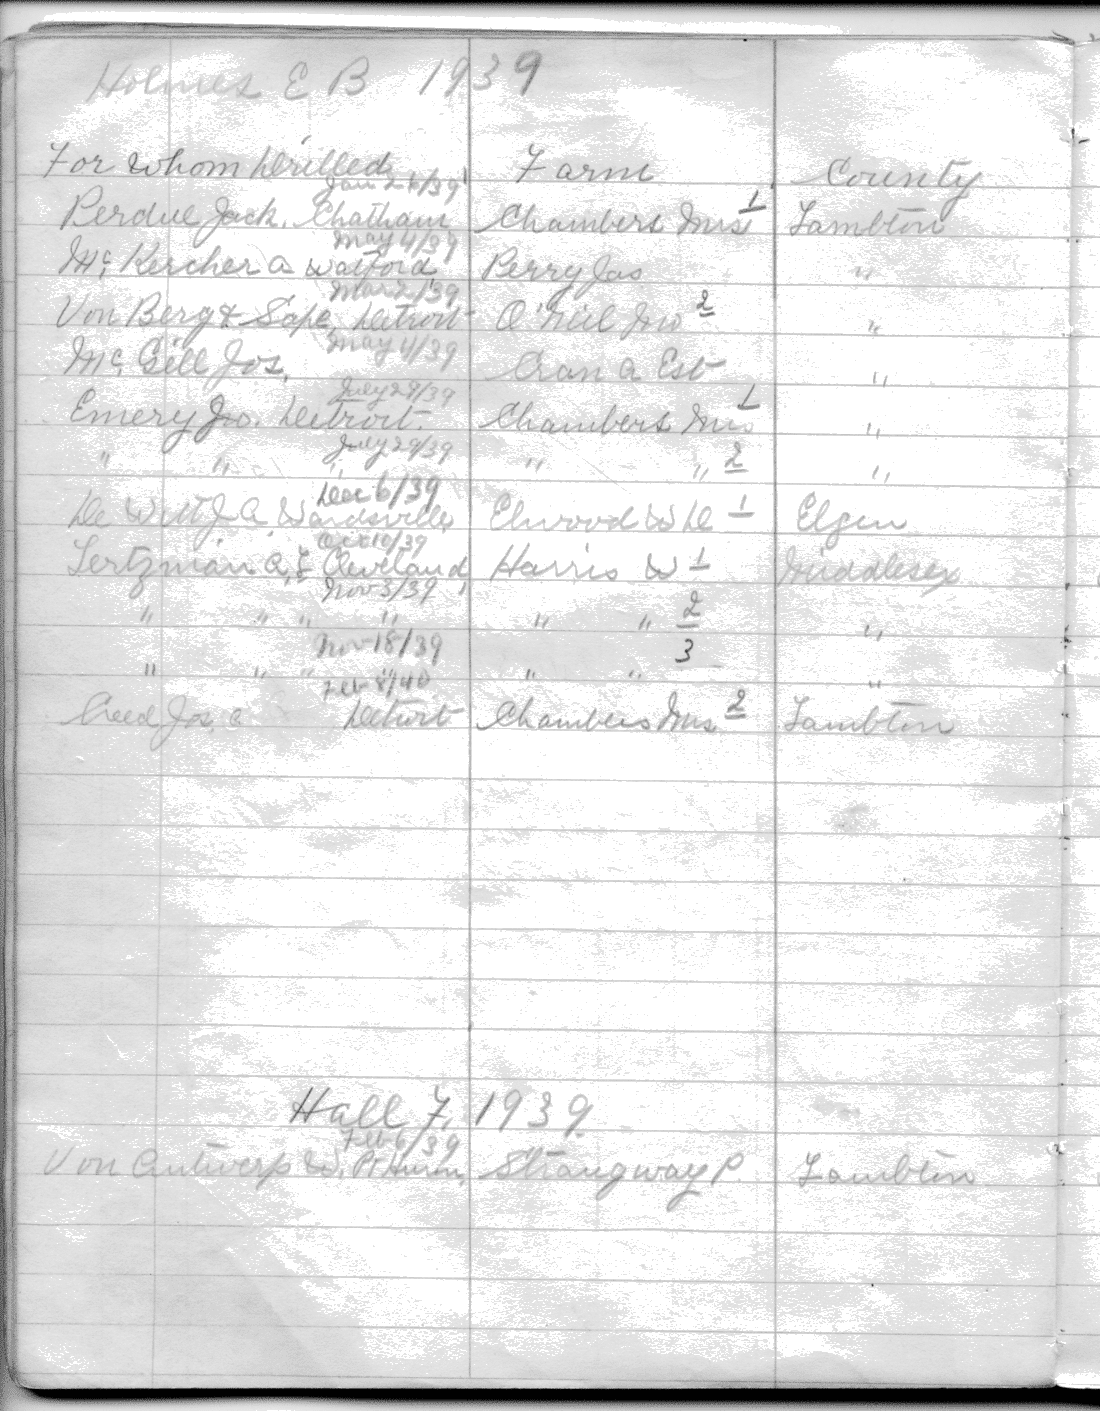 Holmes E B 1939
For Whom Drilled Farm County
Jan 26/39
Perdue Jack. Chatham Chambers Mrs 1 Lambton
May 4/39
Mc Kercher A Watford Perry Jas "
Mar 2/39
Von Berg & Sope, Detroit O'Neil Jno 2 "
May 4/39
Mc Gill Jos, Cran A Est "
July 29/39
Emery Jno. Detroit. Chambers Mrs 1 "
July 29/39
" " " " " 2 "
Dec 6/39
De Witt J A Wardsville Elwood W De 1 Elgin
Oct 10/39
Lertzman A, & Cleveland Harris W 1 Middlesex
Nov 3/39
" " " " " " 2 "
Nov 18/39
" " " " " " 3 "
Feb 8/40
Creed Jos, C Detroit Chambers Mrs 2 Lambton
Hall F, 1939
Feb 6/39
Von Antwerp W, Pt Huron, Strangway P. Lambton